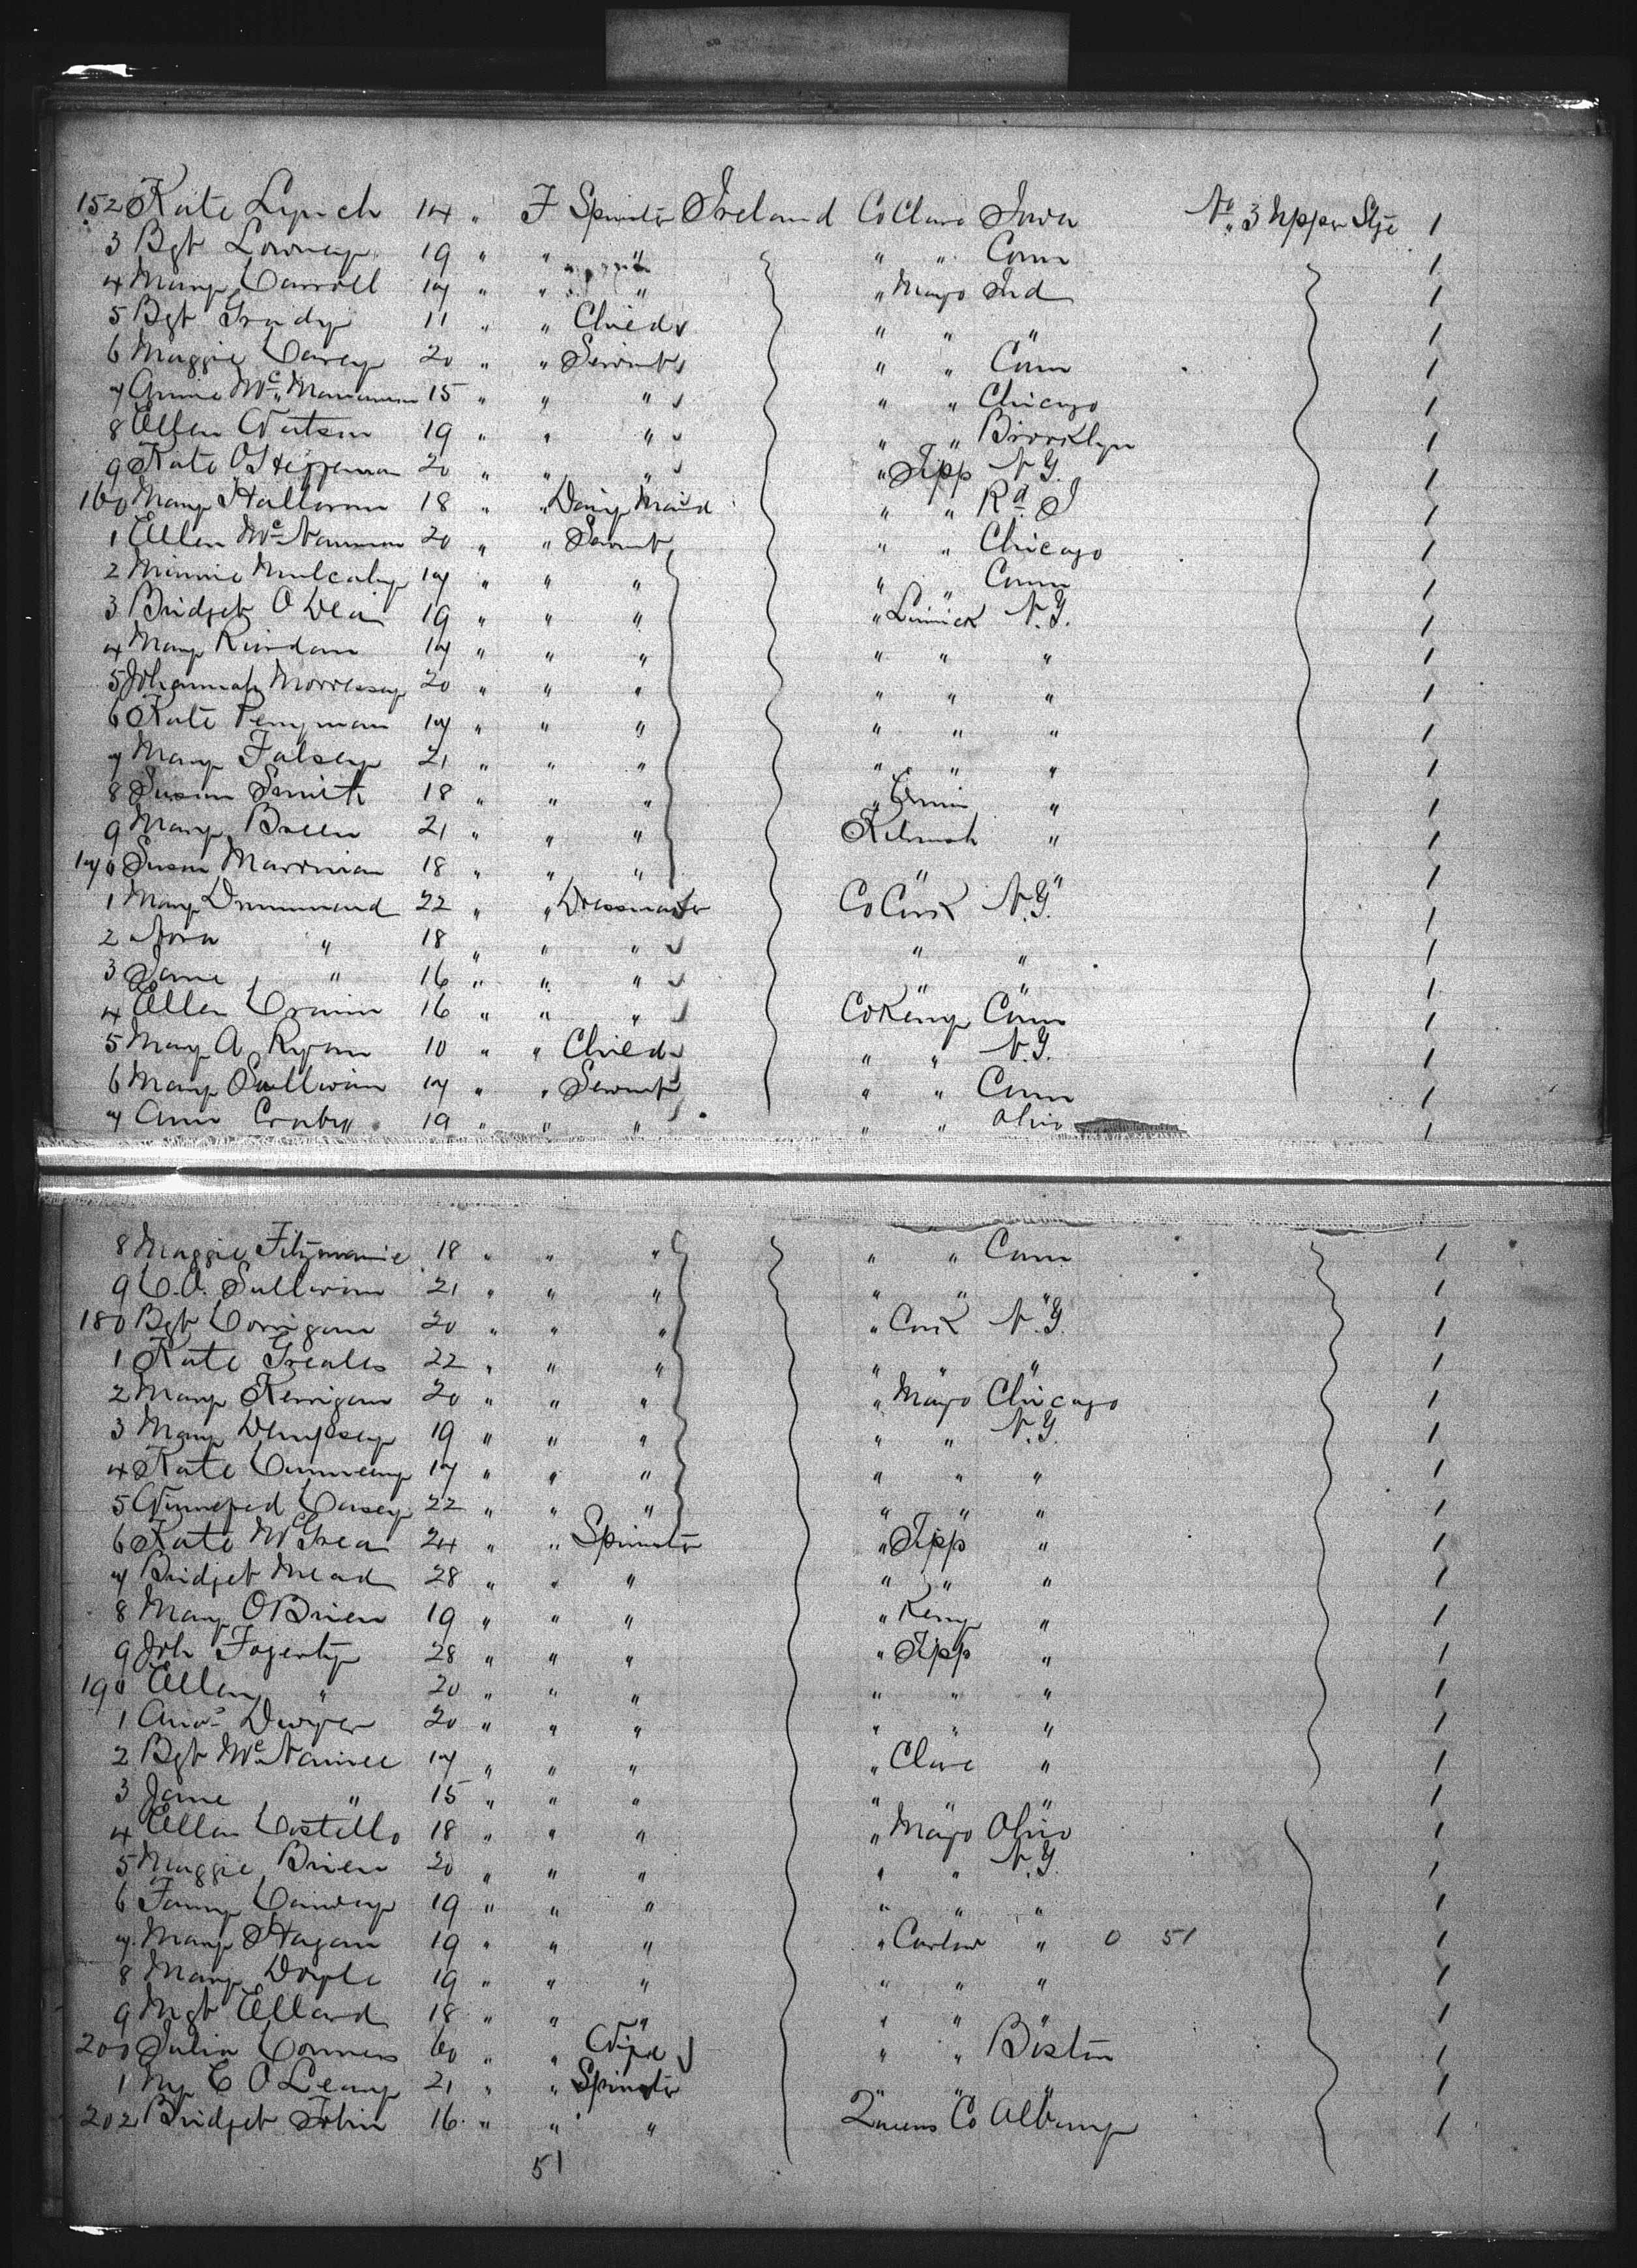 152 Kate Lynch 14 " F Spinster Ireland Co Clare Iowa No 3 Upper Stge 1
3 Bgt Lowney 19 " " " " " Conn 1
4 Mary Carroll 17 " " " " Mayo Ind 1
5 Bgt Grady 11 " " Child " " " 1
6 Maggie Carey 20 " " Servant " " Conn 1
7 Annie Mc 15 " " " " " Chicago 1
8 Ellen Watson 19 " " " " " Brooklyn 1
9 Kate O'Heffernan 20 " " " " Tipp N.Y. 1
160 Mary Halloran 18 " " Dairy Maid " " Rd I 1
1 Ellen McNamara 20 " " Servant " " Chicago 1
2 Minnie Mulcahy 17 " " " " " Conn 1
3 Bridget O Dea 19 " " " " Limrick N.Y. 1
4 Mary Riordan 17 " " " " " " 1
5 Johannah Morrissey 20 " " " " " " 1
6 Kate 17 " " " " " " 1
7 Mary Falsey 21 " " " " " " 1
8 Susan Smith 18 " " " " " 1
9 Mary Breen 21 " " " Kilrush " 1
170 Susan Marrinan 18 " " " " " 1
1 Mary Drummond 22 " " Dressmaker Co Cork N.Y. 1
2 Nora " 18 " " " " " 1
3 Jane " 16 " " " " " 1
4 Ellen Cronin 16 " " " Co Kerry Conn 1
5 Mary A Ryan 10 " " Child " " N.Y. 1
6 Mary Sullivan 17 " " Servant " " Conn 1
7 Ann Crosby 19 " " " " " Ohio 1
8 Maggie Fitzmaurice 18 " " " " " Conn 1
9 C. O. Sullivan 21 " " " " " " 1
180 Bgt Corrigan 20 " " " " Cork N.Y. 1
1 Kate Grealis 22 " " " " " " 1
2 Mary Kerrigan 20 " " " " Mayo Chicago 1
3 Mary Dempsey 19 " " " " " N.Y. 1
4 Kate 17 " " " " " " 1
5 Winnefred Casey 22 " " " " " " 1
6 Kate McGrea 24 " " Spinster " Tipp " 1
7 Bridget Mead 28 " " " " " " 1
8 Mary OBrien 19 " " " " Kerry " 1
9 Joh Fogerty 28 " " " " Tipp " 1
190 Ellen " 20 " " " " " " 1
1 Anas Dwyer 20 " " " " " " 1
2 Bgt McNamee 17 " " " " Clare " 1
3 Jane " 15 " " " " " " 1
4 Ellen Costello 18 " " " " Mayo Ohio 1
5 Maggie Brien 20 " " " " " N.Y. 1
6 Fanny Conway 19 " " " " " " 1
7 Mary Hagan 19 " " " " Carlow " 0 51 1
8 Mary Doyle 19 " " " " " " 1
9 Mgt Ellard 18 " " " " " " 1
200 Julia Connors 60 " " Wife " " Boston 1
1 My E O'Leary 21 " " Spinster " " " 1
202 Bridget Tobin 16 " " " Queens Co Albany 1
51